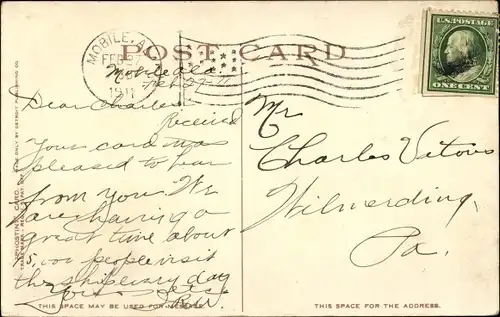 MOBILE, A
FEB 27
1911
POST CARD
U.S. POSTAGE
ONE CENT
Mobile Ala.
Feb 27-11
Dear Charles
Received
Your card was
pleased to hear
from you. We
are having a
great time about
15,000 people visit
the ship every day
R.W.
Mr
Charles Vitous
Wilmerding,
Pa.
"PHOSTINT" CARD. MADE ONLY BY DETROIT PUBLISHING CO.
THIS SPACE MAY BE USED FOR MESSAGE.
THIS SPACE FOR THE ADDRESS.